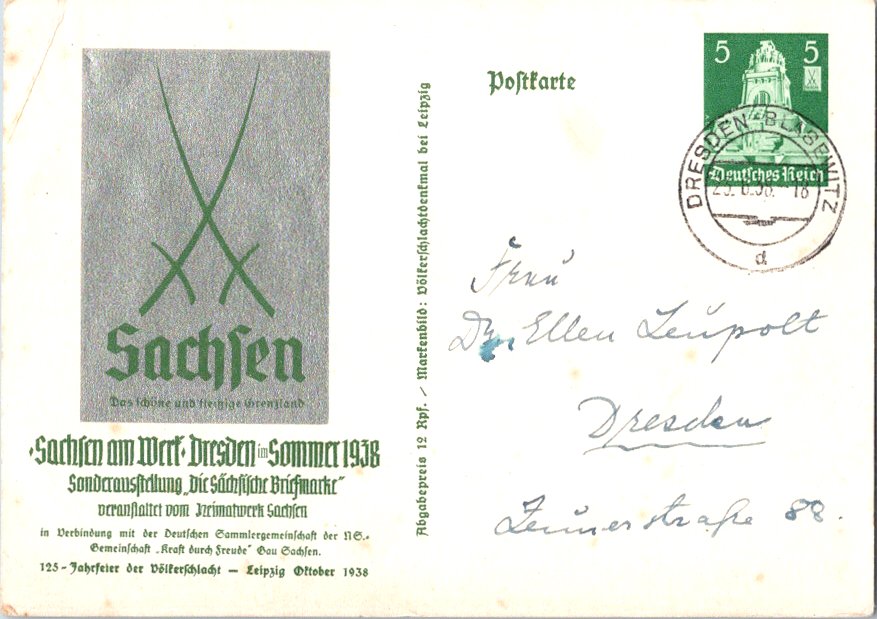 Sachsen
Das schöne und fleißige Grenzland
·Sachsen am Werk· Dresden im Sommer 1938
Sonderausstellung „Die Sächsische Briefmarke"
veranstaltet vom Heimatwerk Sachsen
in Verbindung mit der Deutschen Sammlergemeinschaft der NS.-
Gemeinschaft „Kraft durch Freude" Gau Sachsen.
125-Jahrfeier der Völkerschlacht — Leipzig Oktober 1938
Abgabepreis 12 Rpf. / Markenbild: Völkerschlachtdenkmal bei Leipzig
Postkarte
5 5
Deutsches Reich
DRESDEN-BLASEWITZ
.6.38.-18
d
Frau
Dr. Ellen Leupolt
Dresden
straße 88.